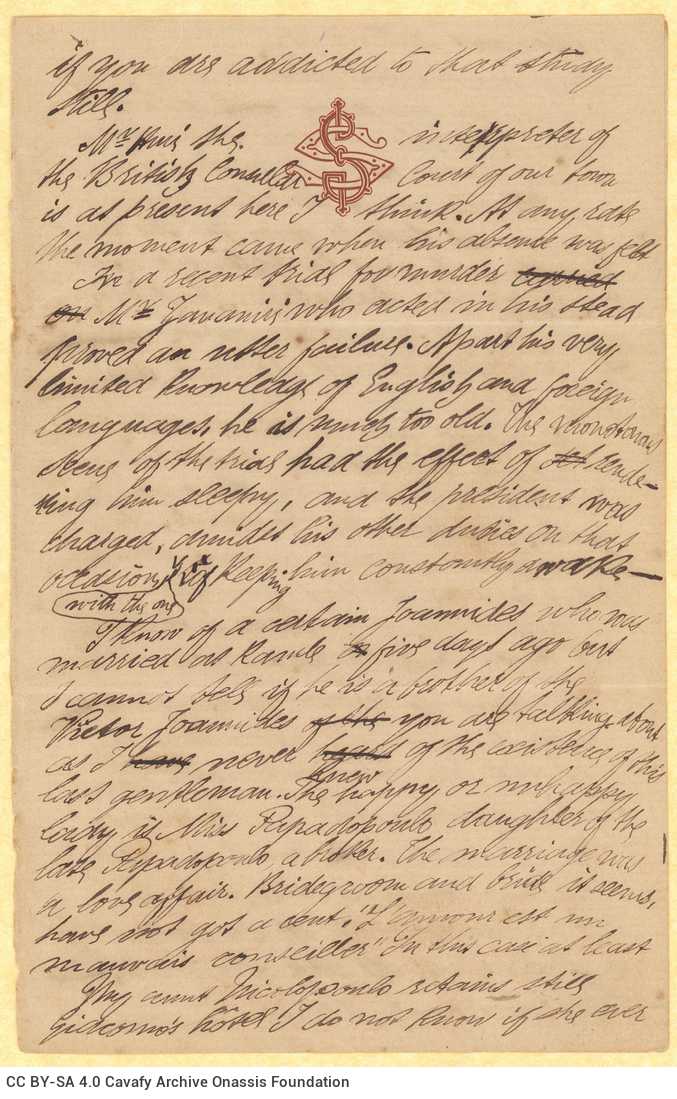 if you are addicted to that study
still.
Mr the interpreter of
the British Consular Court of our town
is at present here I think. At any rate
the moment came when his absence was felt
In a recent trial for murder
Mr who acted in his stead
proved an utter failure. Apart his very
limited knowledge of English and foreign
languages, he is much too old. The monotonous
scene of the trial had the effect of rende-
ring him sleepy, and the president was
charged, amidst his other duties on that
occasion, with the one of keeping him constantly awake—
I know of a certain Joannides who was
married at Ramle five days ago but
I cannot tell if he is a brother of the
Victor Joannides of the you are talking about
as I have never heard knew of the existence of this
last gentleman. The happy or unhappy
lady is Miss Papadopoulo daughter of the
late Papadopoulo a broker. The marriage was
a love affair. Bridegroom and bride it seems,
have not got a cent, "L'amour est un
mauvais conseiller" In this case at least
My aunt Nicolopoulo retains still
giacomo's hôtel I do not know if she ever
CC BY-SA 4.0 Cavafy Archive Onassis Foundation